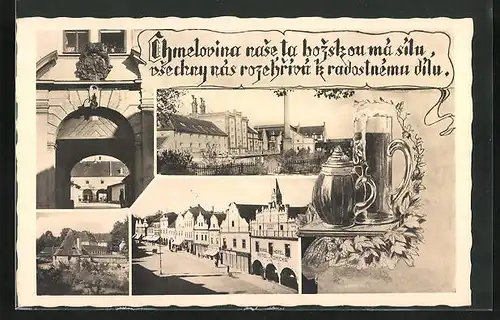 Chmelovina naše ta božskou má sílu,
všechny nás rozehřívá k radostnému dílu.